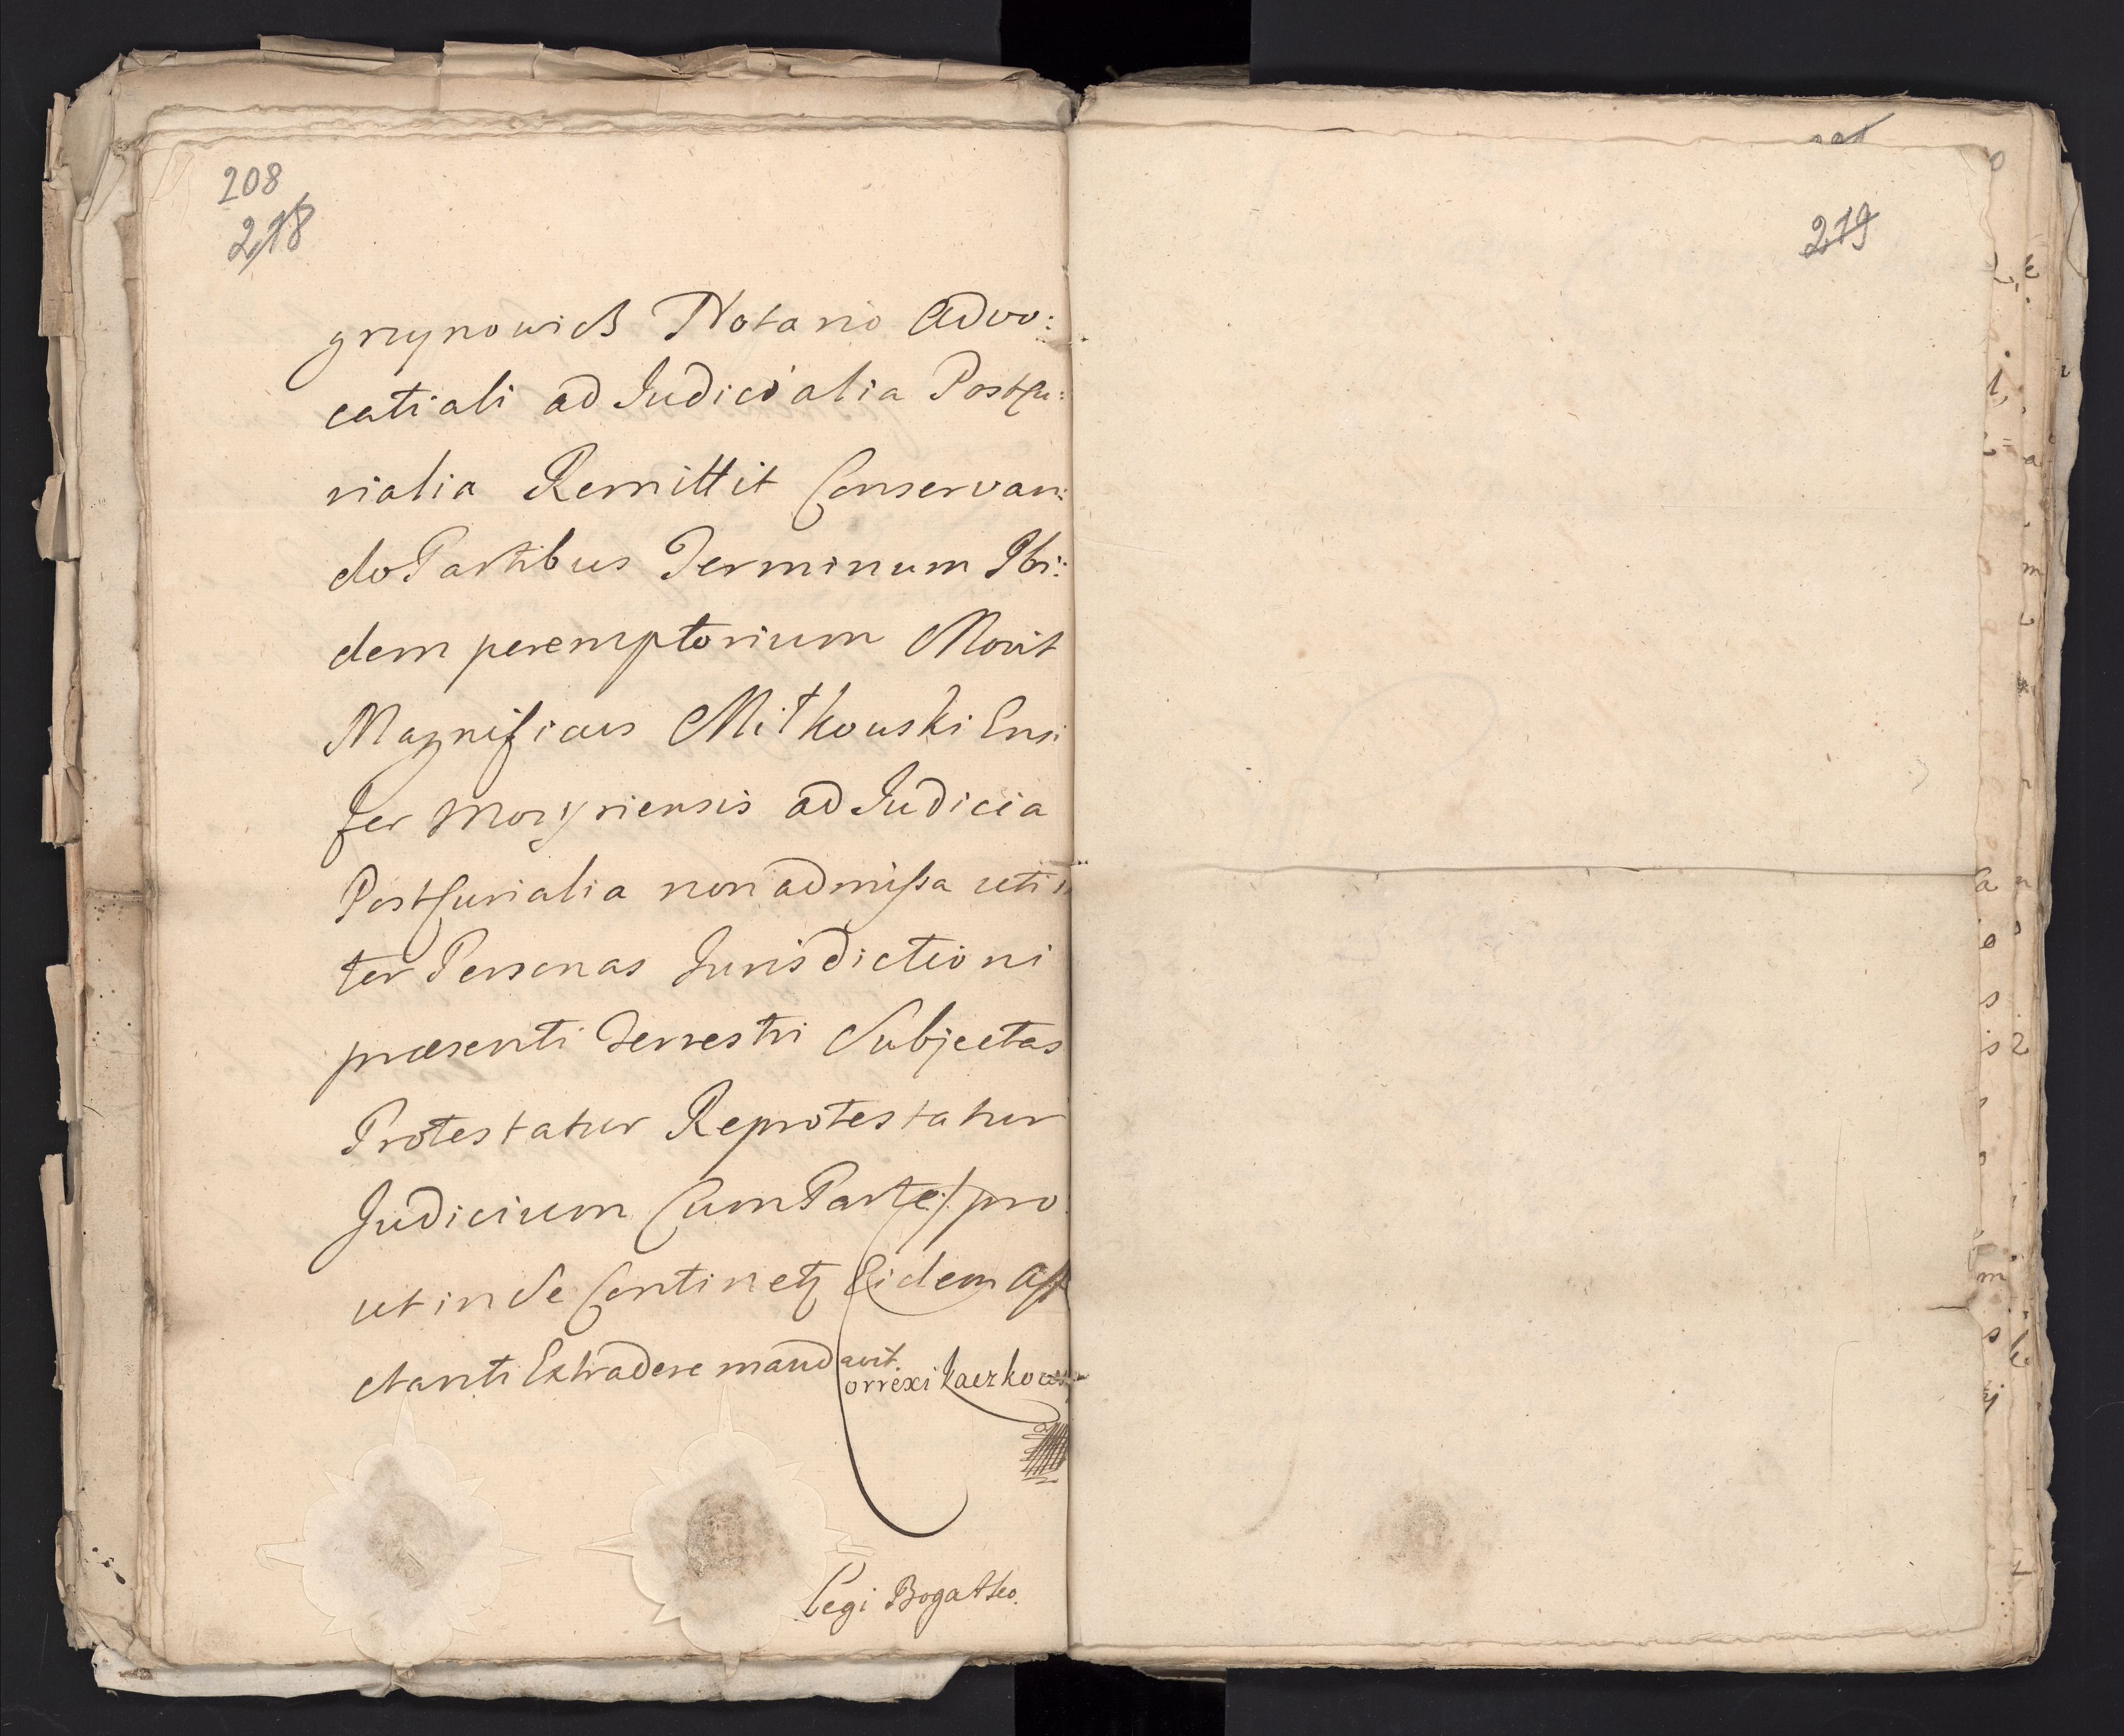 208
218
grzynowicz Notario Advo:
catiali ad Judicialia Postcu:
rialia Remittit Conservan:
do Partibus Terminum Ibi:
dem peremptorium Movit
Magnificus Mitkowski Ensi
fer Mozyriensis ad Judicia
Postcurialia non admissa uti in
ter Personas Jurisdictioni
præsenti Terrestri Subjectas
Protestatur Reprotestatur
Judicium Cum Parte/: pro
ut inde Continetz Eidem Aff
ctanti Extradere mandavit.
Correxi Kaczkowski
Legi Bogatko.
219